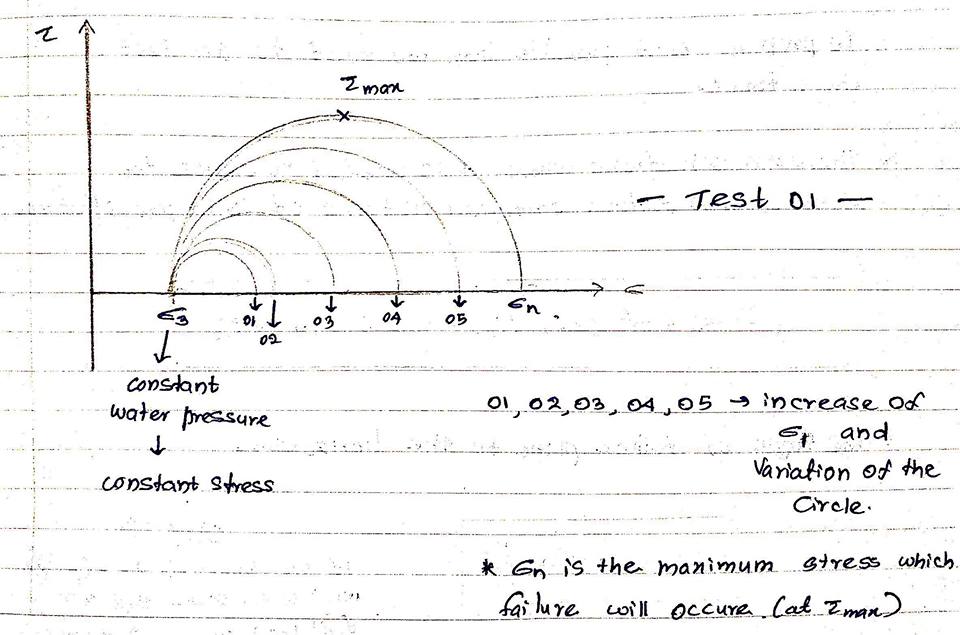 τ
τ max
— Test 01 —
σ3 01 02 03 04 05 σn . σ
constant
water pressure
↓
constant stress
01, 02, 03, 04, 05 → increase of
σ1 and
Variation of the
Circle.
* σn is the maximum stress which
failure will occure (at τ max)